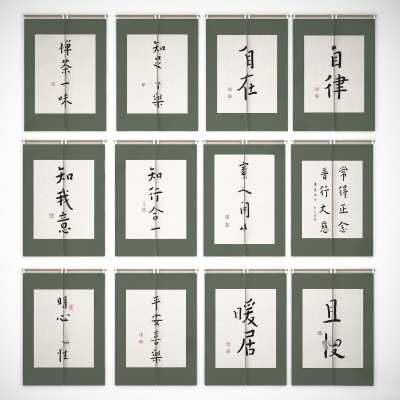 禅茶一味
知足常樂
自在
自律
知我意
知行合一
常得正念
普行大慈
明心
性
平安喜樂
暖居
且慢